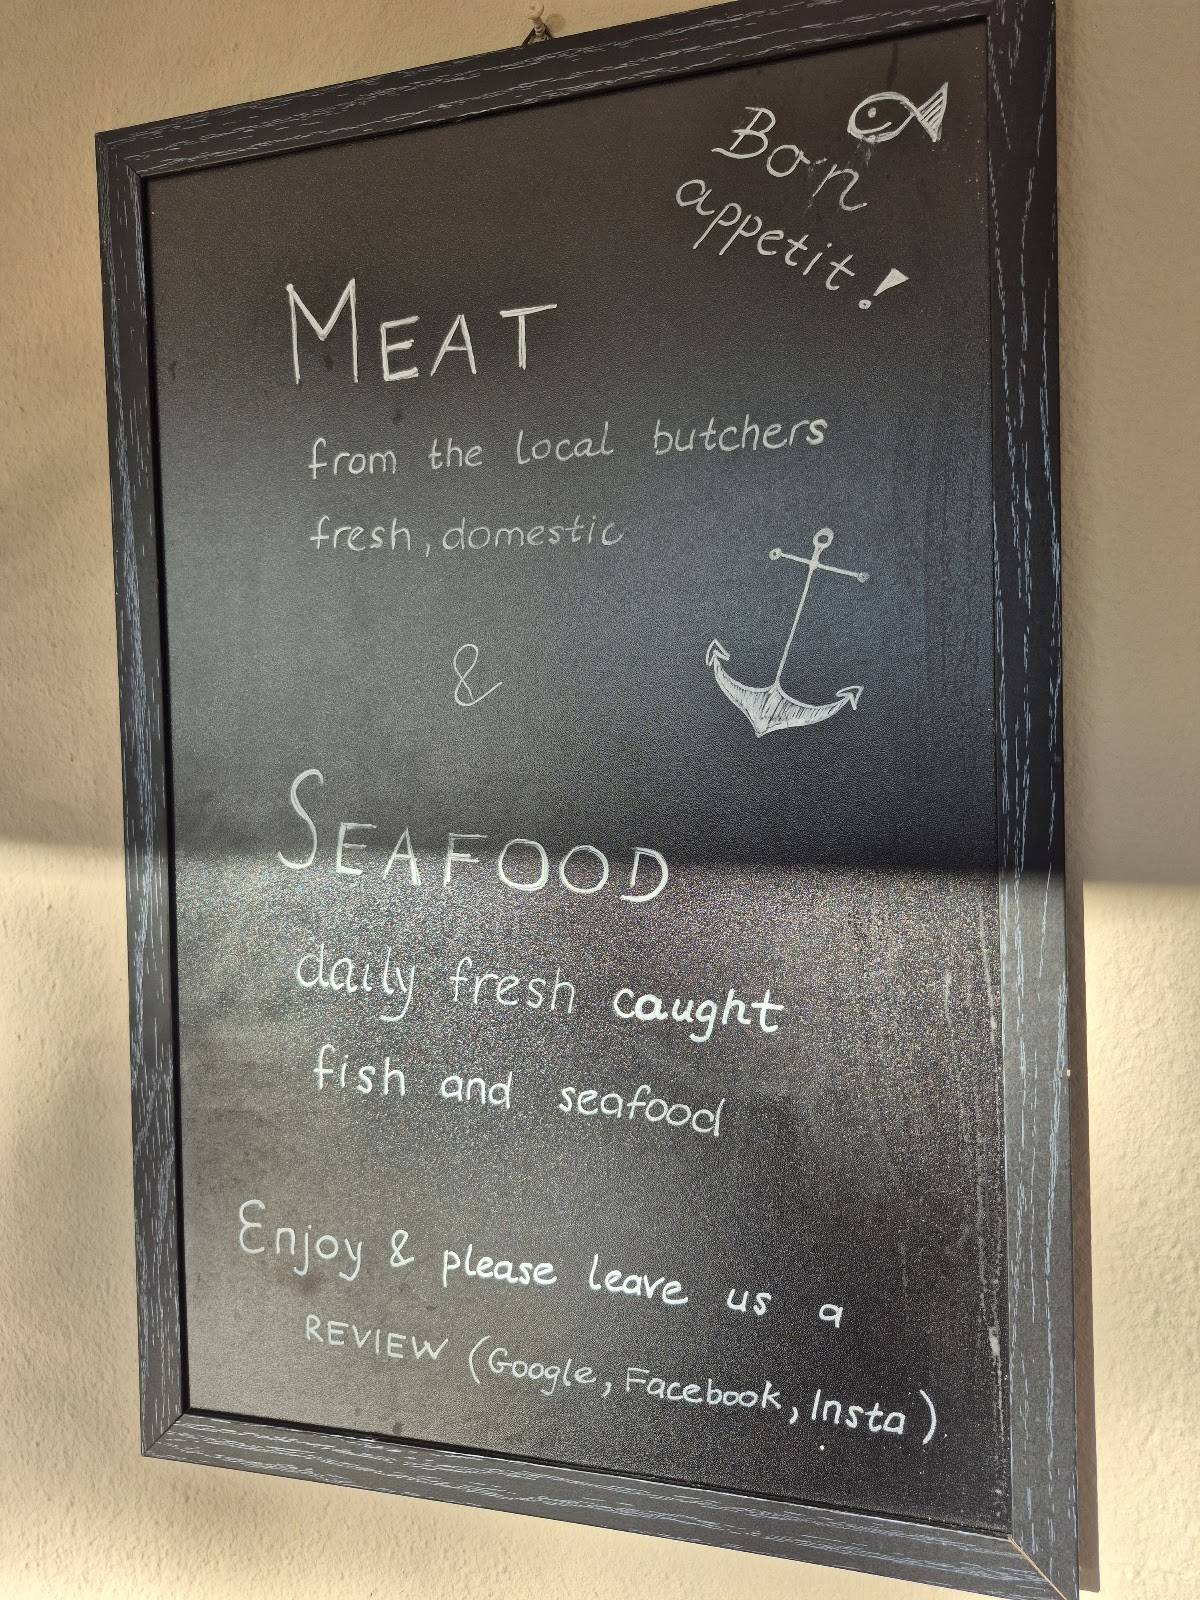 Bon
appetit!
MEAT
from the local butchers
fresh, domestic
&
SEAFOOD
daily fresh caught
fish and seafood
Enjoy & please leave us a
REVIEW (Google, Facebook, Insta)